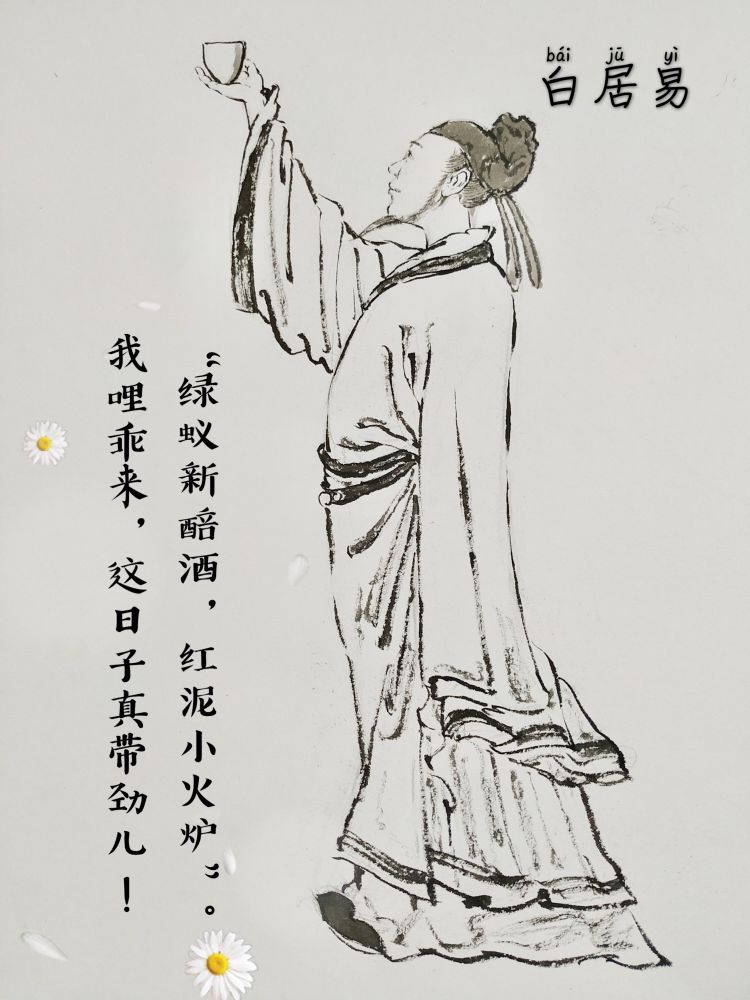 bái jū yì
白居易
“绿蚁新醅酒，红泥小火炉”。
我哩乖来，这日子真带劲儿！